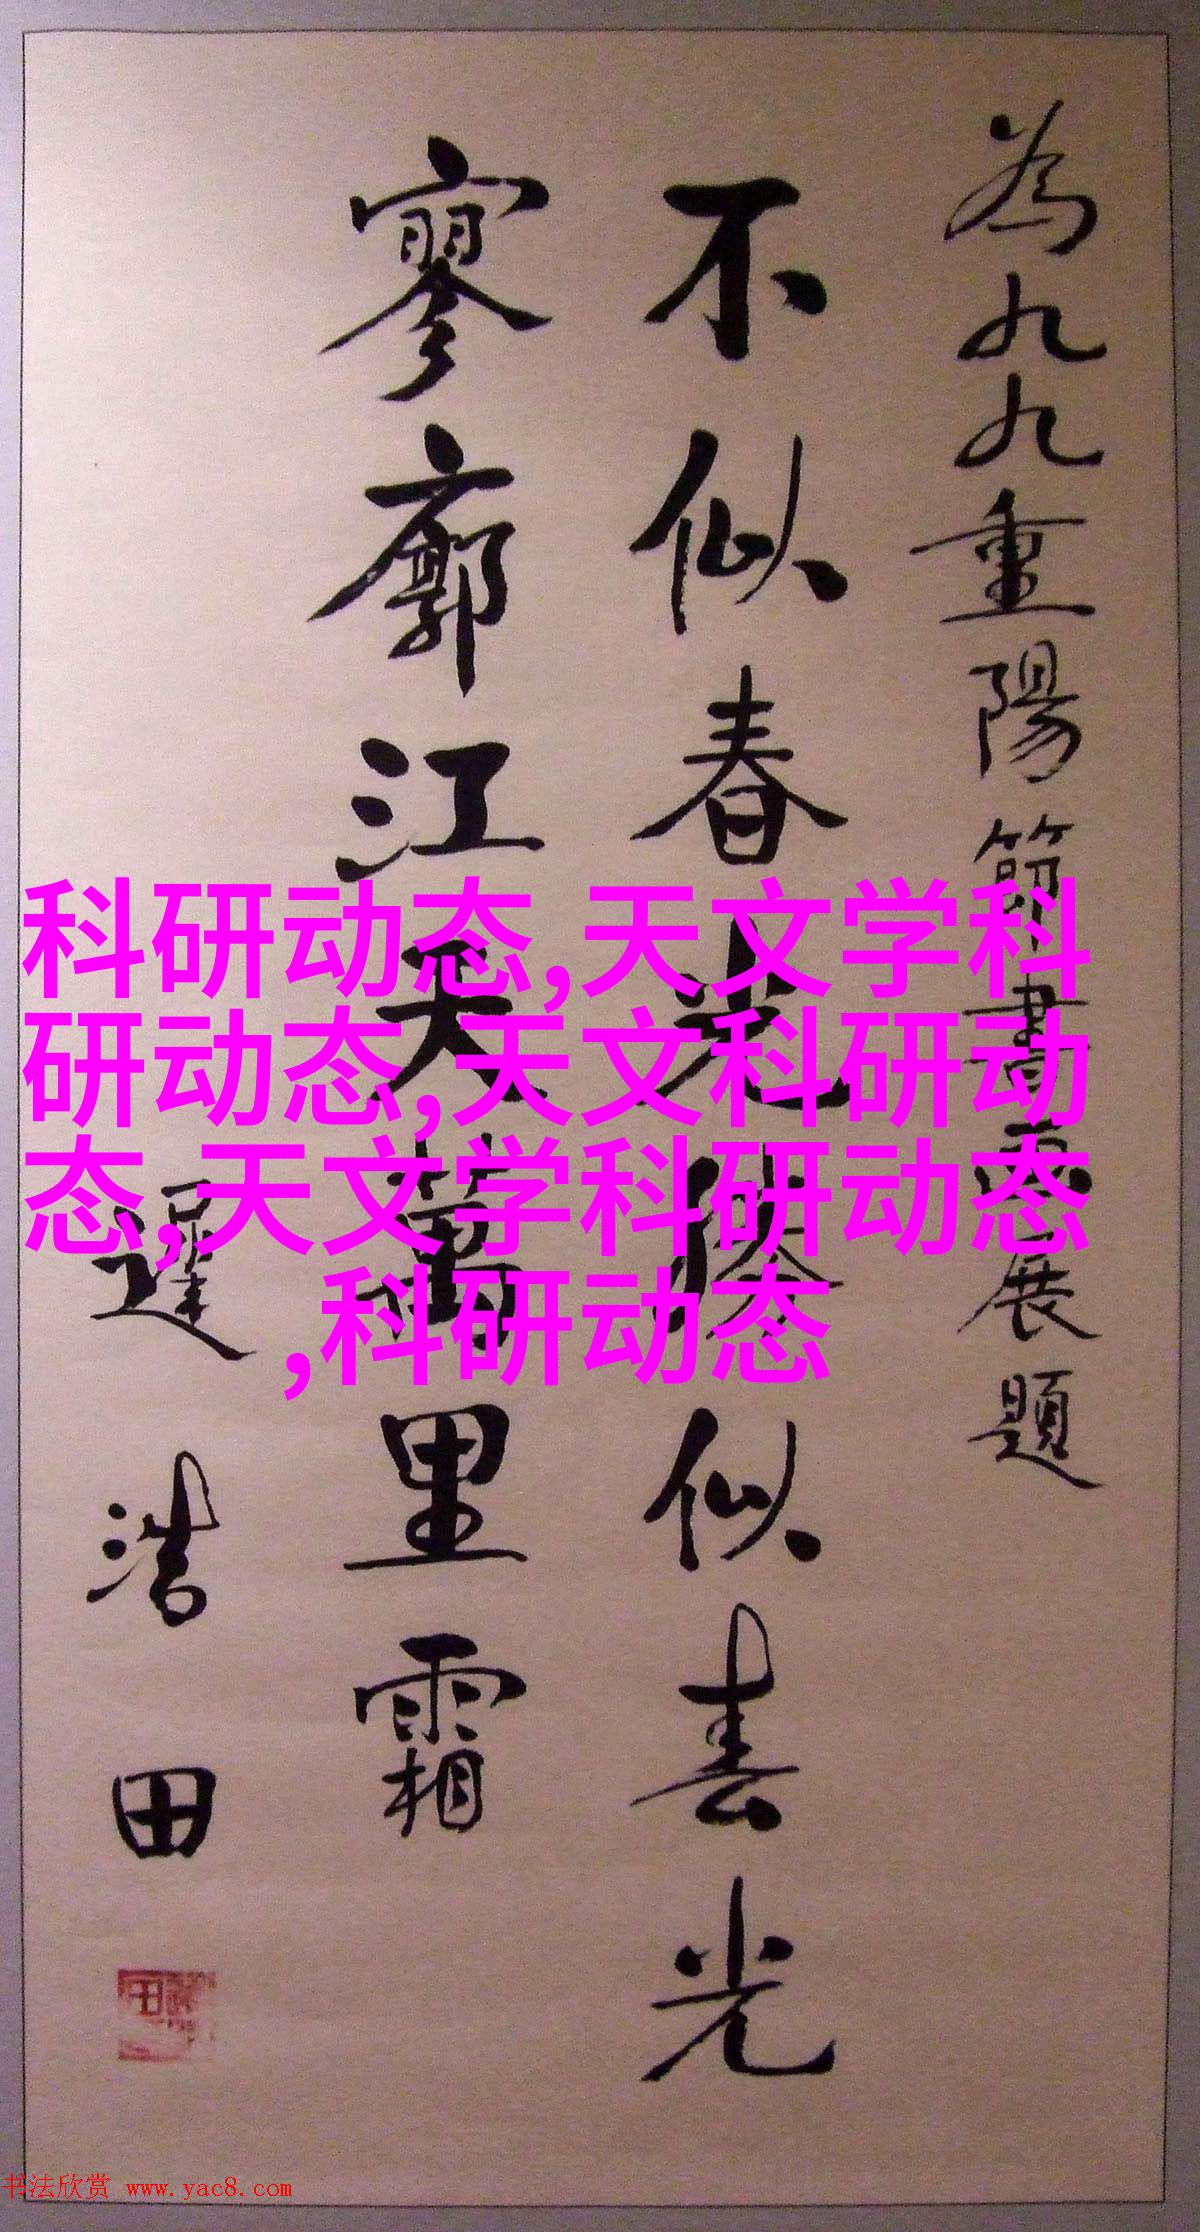 為九九重陽節書畫展題
不似春光勝似春光
寥廓江天萬里霜
遲浩田
科研动态,天文学科
研动态,天文科研动
态,天文学科研动态
,科研动态
书法欣赏 www.yac8.com